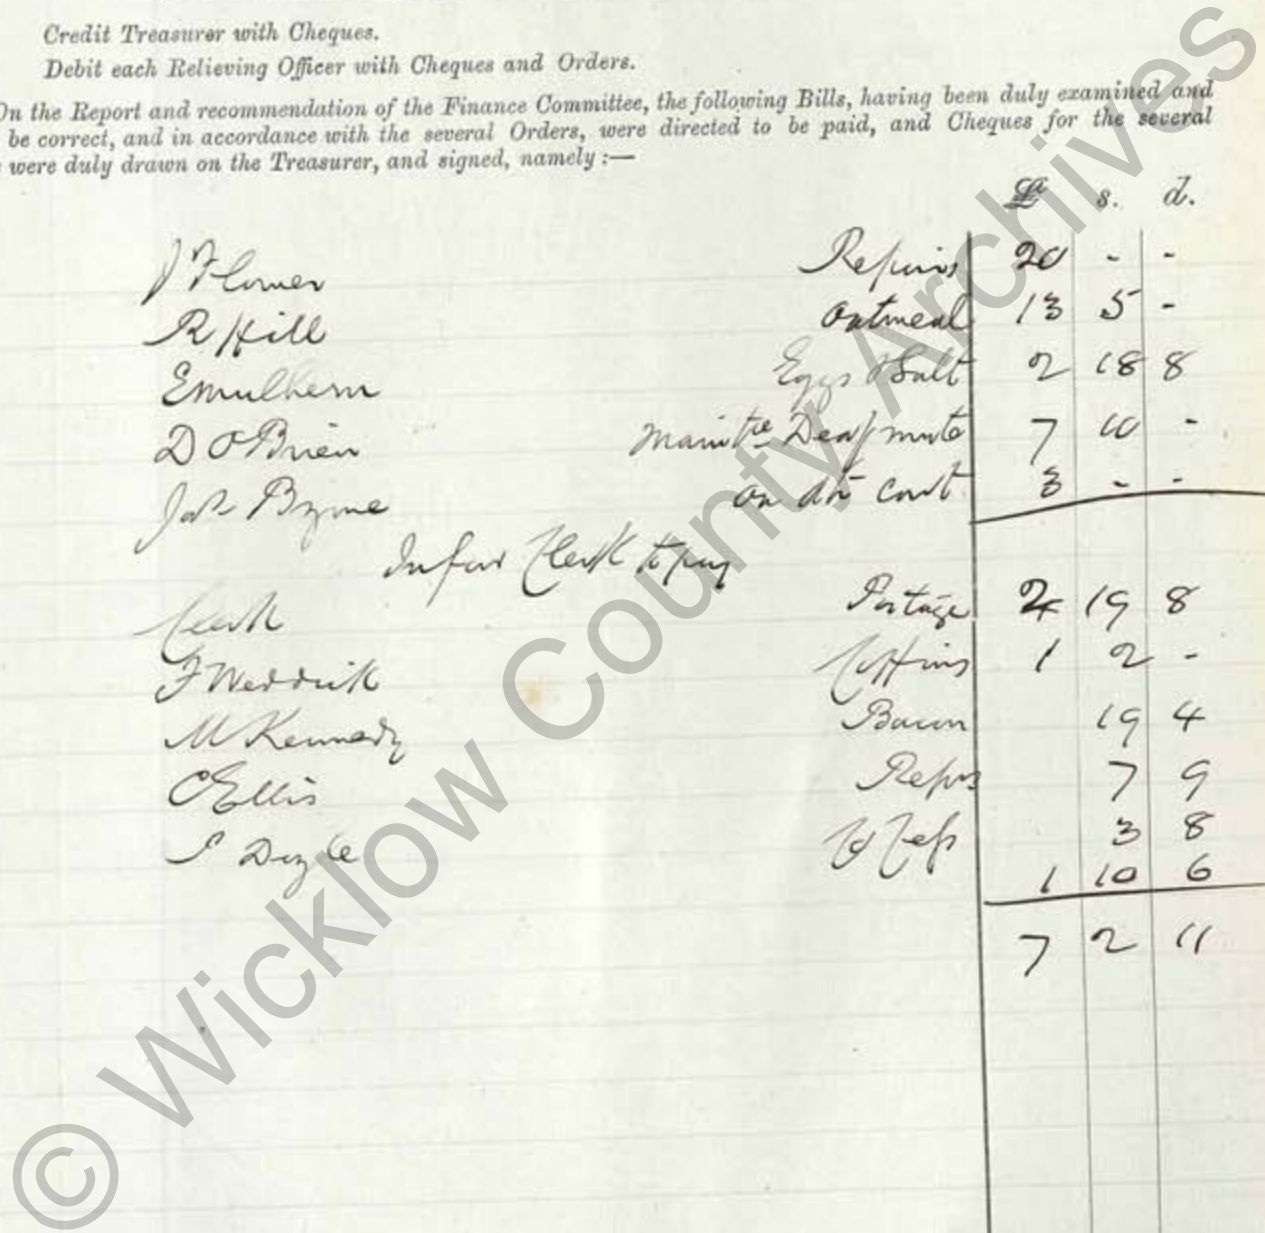 Credit Treasurer with Cheques.
Debit each Relieving Officer with Cheques and Orders.
On the Report and recommendation of the Finance Committee, the following Bills, having been duly examined and
be correct, and in accordance with the several Orders, were directed to be paid, and Cheques for the several
were duly drawn on the Treasurer, and signed, namely :—
£ s. d.
Repairs 20 - -
R Hill Oatmeal 13 5 -
E Mulhern Eggs & Salt 2 18 8
D O'Brien Maintce Deaf mute 7 10 -
Jas Byrne on a/c cont 3 - -
Infor Clerk to pay
Clerk Postage 2 19 8
F Weddick Coffins 1 2 -
M Kennedy Bacon 19 4
C Ellis Reprs 7 9
Doyle 3 8
1 10 6
7 2 11
© Wicklow County Archives